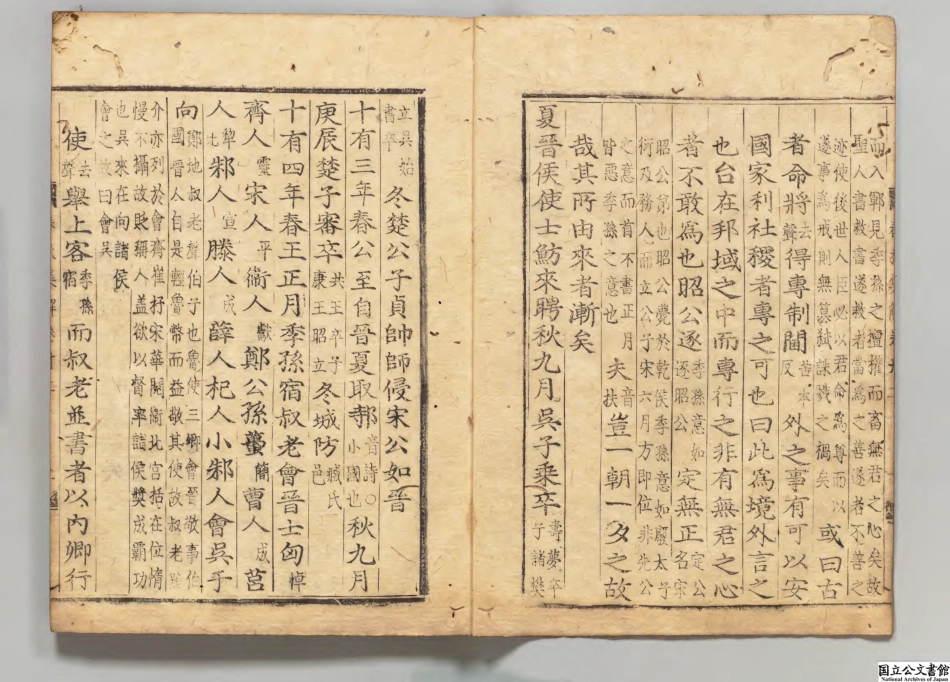 而入鄆見季孫之擅權而畜無君之心矣故
聖人書救書遂救者當爲之善遂者不善之
迹使後世人臣必以君命爲尊而以
遂事爲戒則無簒弑誅戮之禍矣
或曰古
者命將去聲得專制閫苦本反外之事有可以安
國家利社稷者專之可也曰此爲境外言之
也台在邦域之中而專行之非有無君之心
者不敢爲也昭公逐季孫意如逐昭公定無正定公名宋
昭公弟也昭公薨於乾侯季孫意如廢太子
衍及務人而立公子宋六月方即位非先公
之意而首不書正月
皆惡季孫之意也
夫音扶豈一朝一夕之故
哉其所由來者漸矣
夏晉侯使士魴來聘秋九月吳子乘卒壽夢卒子諸樊
立吳始書卒冬楚公子貞帥師侵宋公如晉
十有三年春公至自晉夏取邿音詩○小國也秋九月
庚辰楚子審卒共王卒子康王昭立冬城防臧氏邑
十有四年春王正月季孫宿叔老會晉士匄悼
齊人靈宋人平衞人獻鄭公孫蠆簡曹人成莒
人犂比邾人宣滕人成薛人杞人小邾人會吳于
向
鄭地叔老聲伯子也魯使三卿會晉敬事伯
國晉人自是輕魯幣而益敬其使故叔老
介亦列於會齊崔杼宋華閱衞北宮括在位惰
慢不攝故貶稱人盖欲以督率諸侯奬成霸功
也吳來在向諸侯
會之故曰會吳
使去聲舉上客季孫宿而叔老並書者以內卿行
国立公文書館
National Archives of Japan